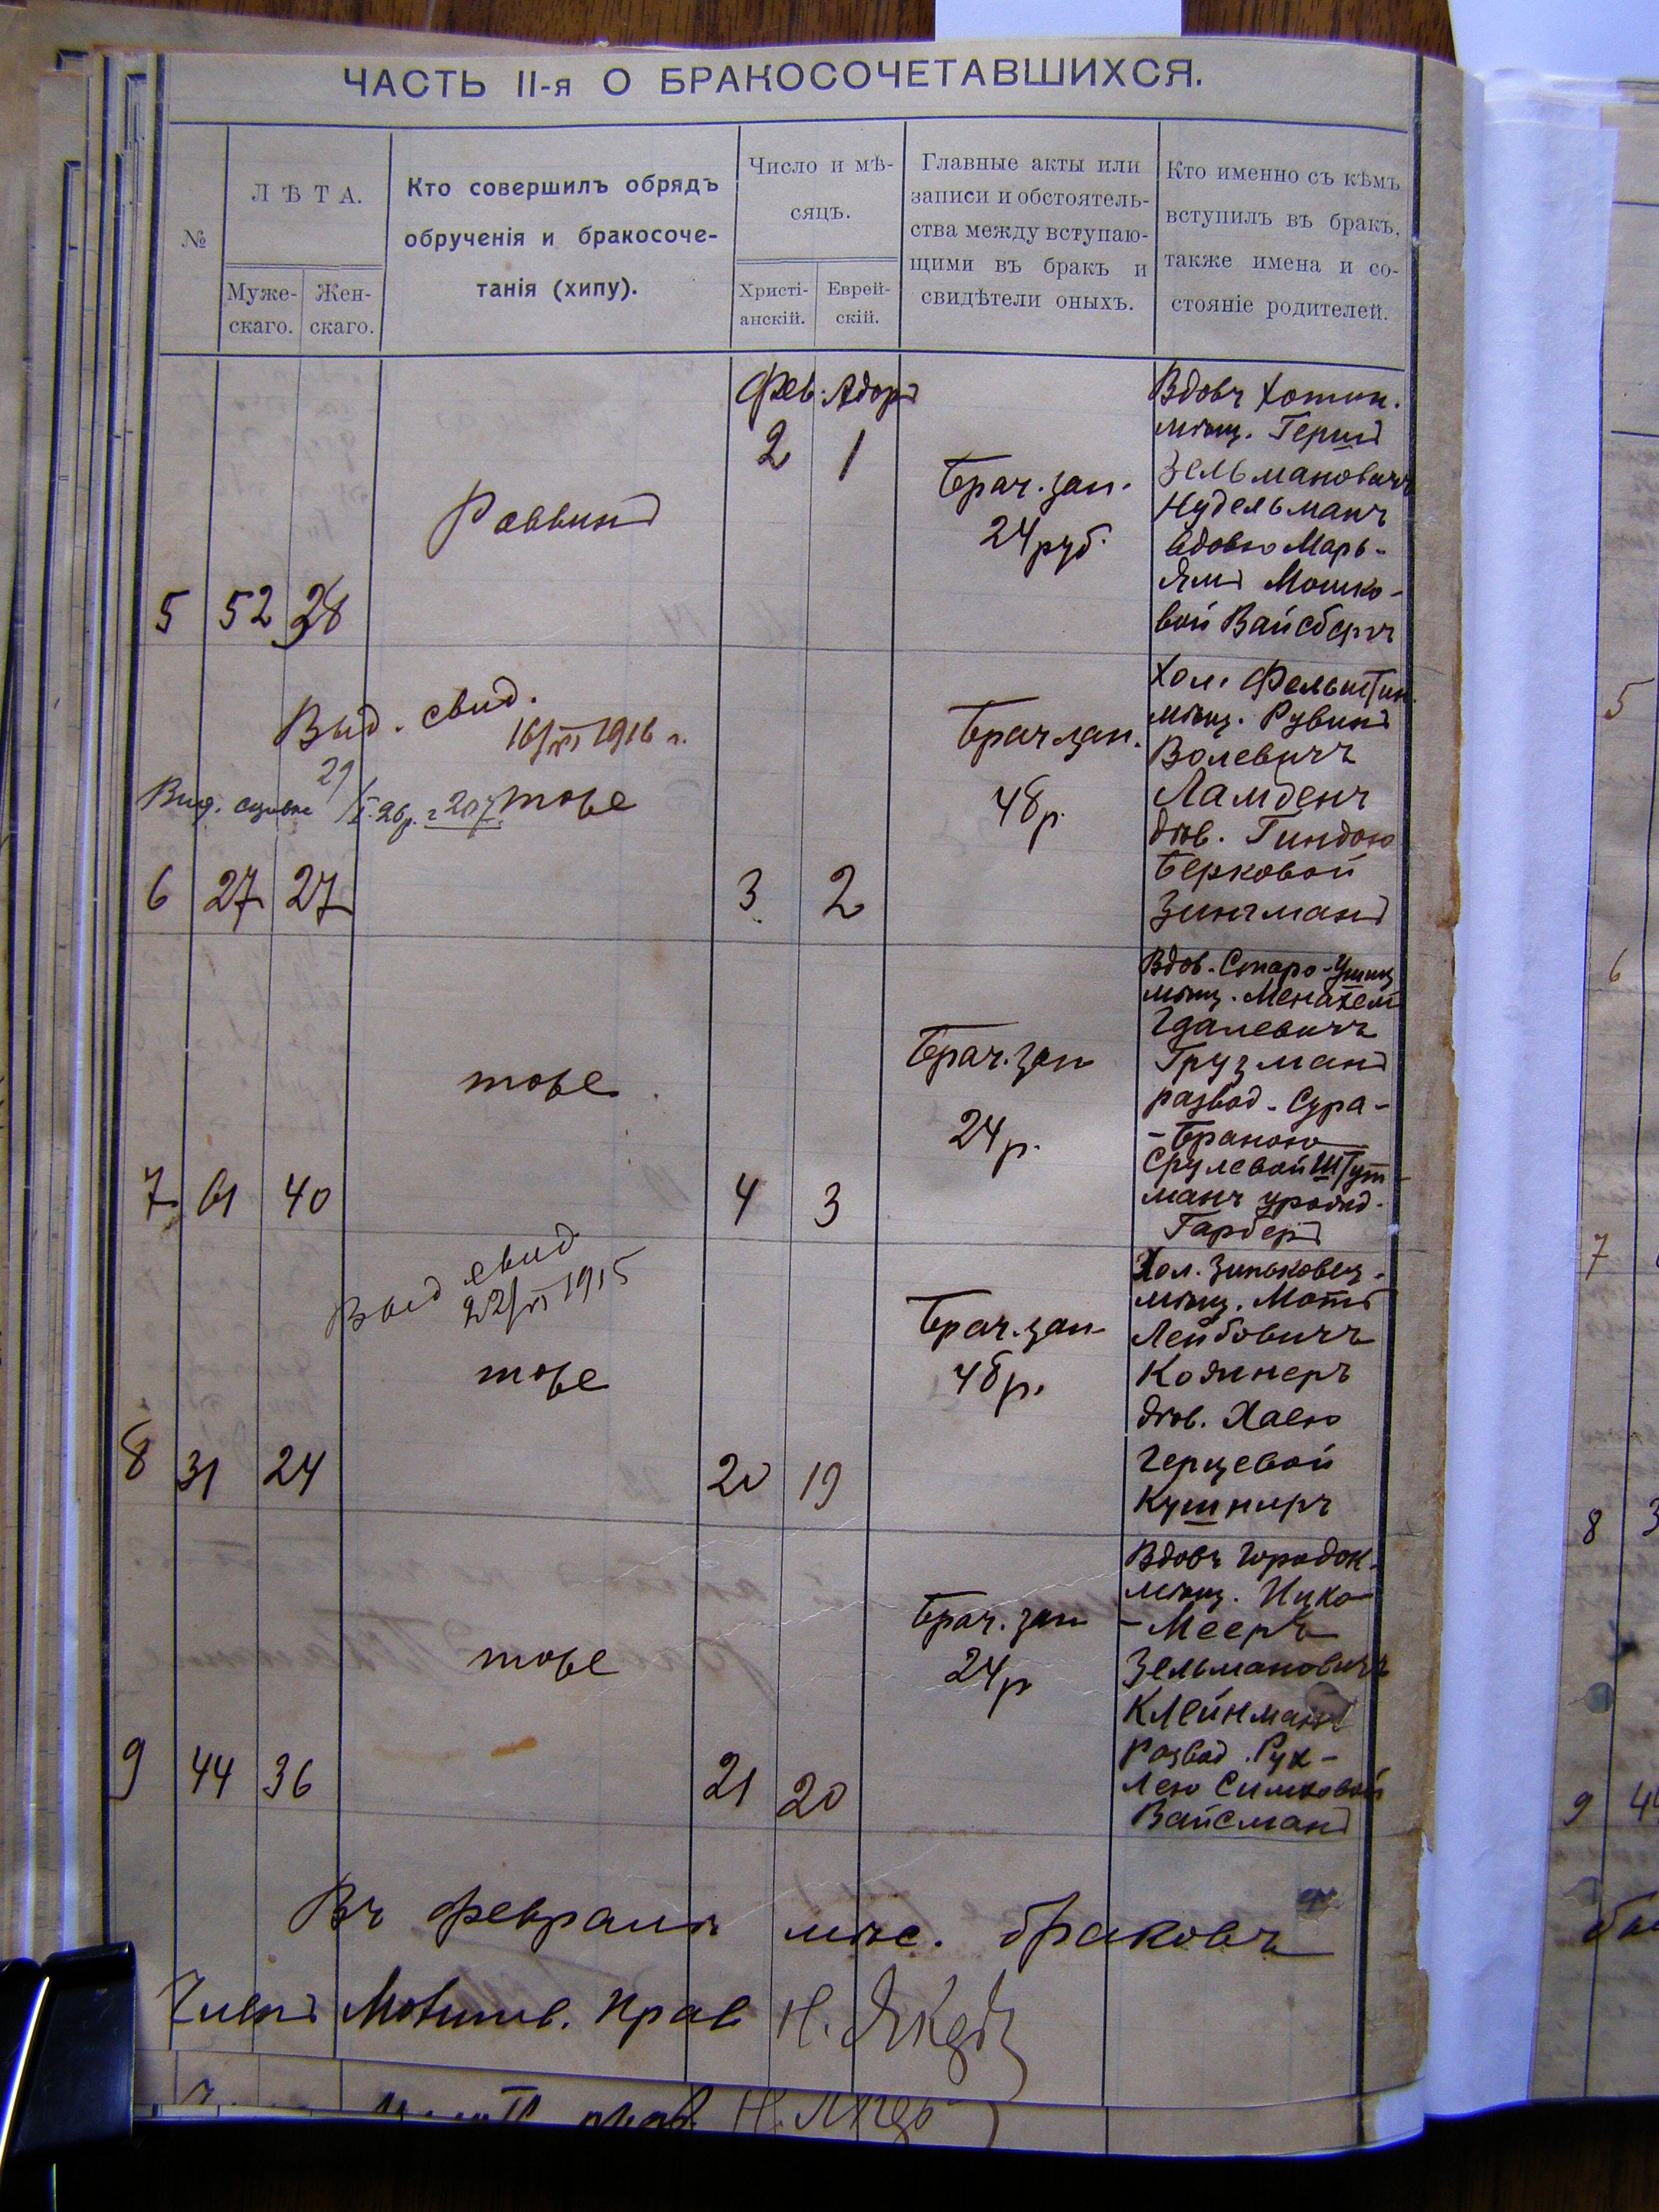 ЧАСТЬ II-я О БРАКОСОЧЕТАВШИХСЯ.
№
ЛѢТА.
Муже-
скаго.
Жен-
скаго.
Кто совершилъ обрядъ
обрученія и бракосоче-
танія (хипу).
Число и мѣ-
сяцъ.
Христі-
анскій.
Еврей-
скій.
Главные акты или
записи и обстоятель-
ства между вступаю-
щими въ бракъ и
свидѣтели оныхъ.
Кто именно съ кѣмъ
вступилъ въ бракъ,
также имена и со-
стояніе родителей.
5 52 38
Раввинъ
Фев. Адоръ
2 1
Брач. зап.
24 руб.
Вдовъ Хотин.
мѣщ. Гершъ
Зельмановичъ
Нудельманъ
вдовою Марь-
ямъ Мошко-
вой Вайсбергъ
Выд. свид.
16/VI 1916 г.
29/X 26 р. 207
тоже
6 27 27
3 2
Брач зап.
48 р.
Хол. Фельштин.
мѣщ. Рувинъ
Волевичъ
Ламденъ
дѣв. Гиндою
Берковой
Зингманъ
7 61 40
тоже
4 3
Брач. зап
24 р.
Вдов. Старо-Ушиц
мѣщ. Менахем
Гдалевичъ
Грузманъ
развод. Сура-
-Браною
Срулевой Штут-
манъ урожд.
Гарберъ
Выд свид
22/VI 1915
тоже
8 31 24
20 19
Брач. зап
48 р.
Хол. Зиньковец.
мѣщ. Мотъ
Лейбовичъ
Кожнеръ
дѣв. Хаею
Герцевой
Кушниръ
9 44 36
тоже
21 20
Брач. зап
24 р
Вдовъ Городок.
мѣщ. Ицко-
-Мееръ
Зельмановичъ
Клейнманъ
развод. Рух-
лею Симховой
Вайсманъ
Въ февралѣ мѣс. браковъ
Членъ Молитв. Прав Н.
5
6
7
8 3
9 44